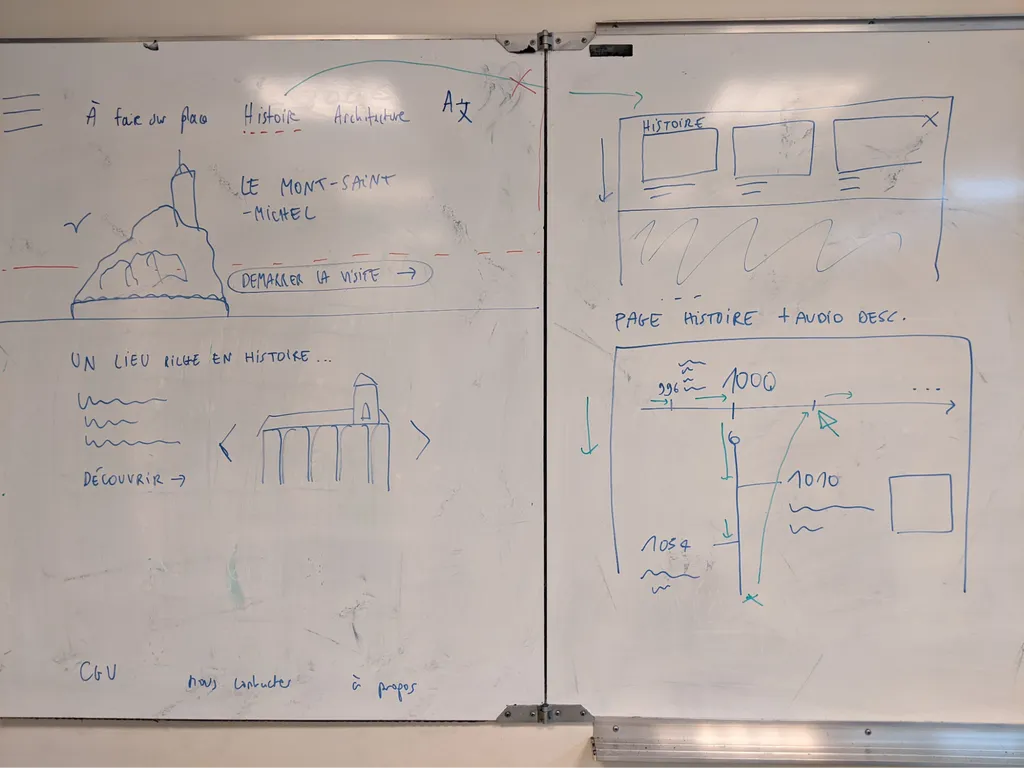 À faire sur place Histoire Architecture A文
LE MONT-SAINT
-MICHEL
DEMARRER LA VISITE →
UN LIEU RICHE EN HISTOIRE...
DÉCOUVRIR →
CGU nous contacter à propos
HISTOIRE X
PAGE HISTOIRE + AUDIO DESC.
996 1000 ...
1010
1054